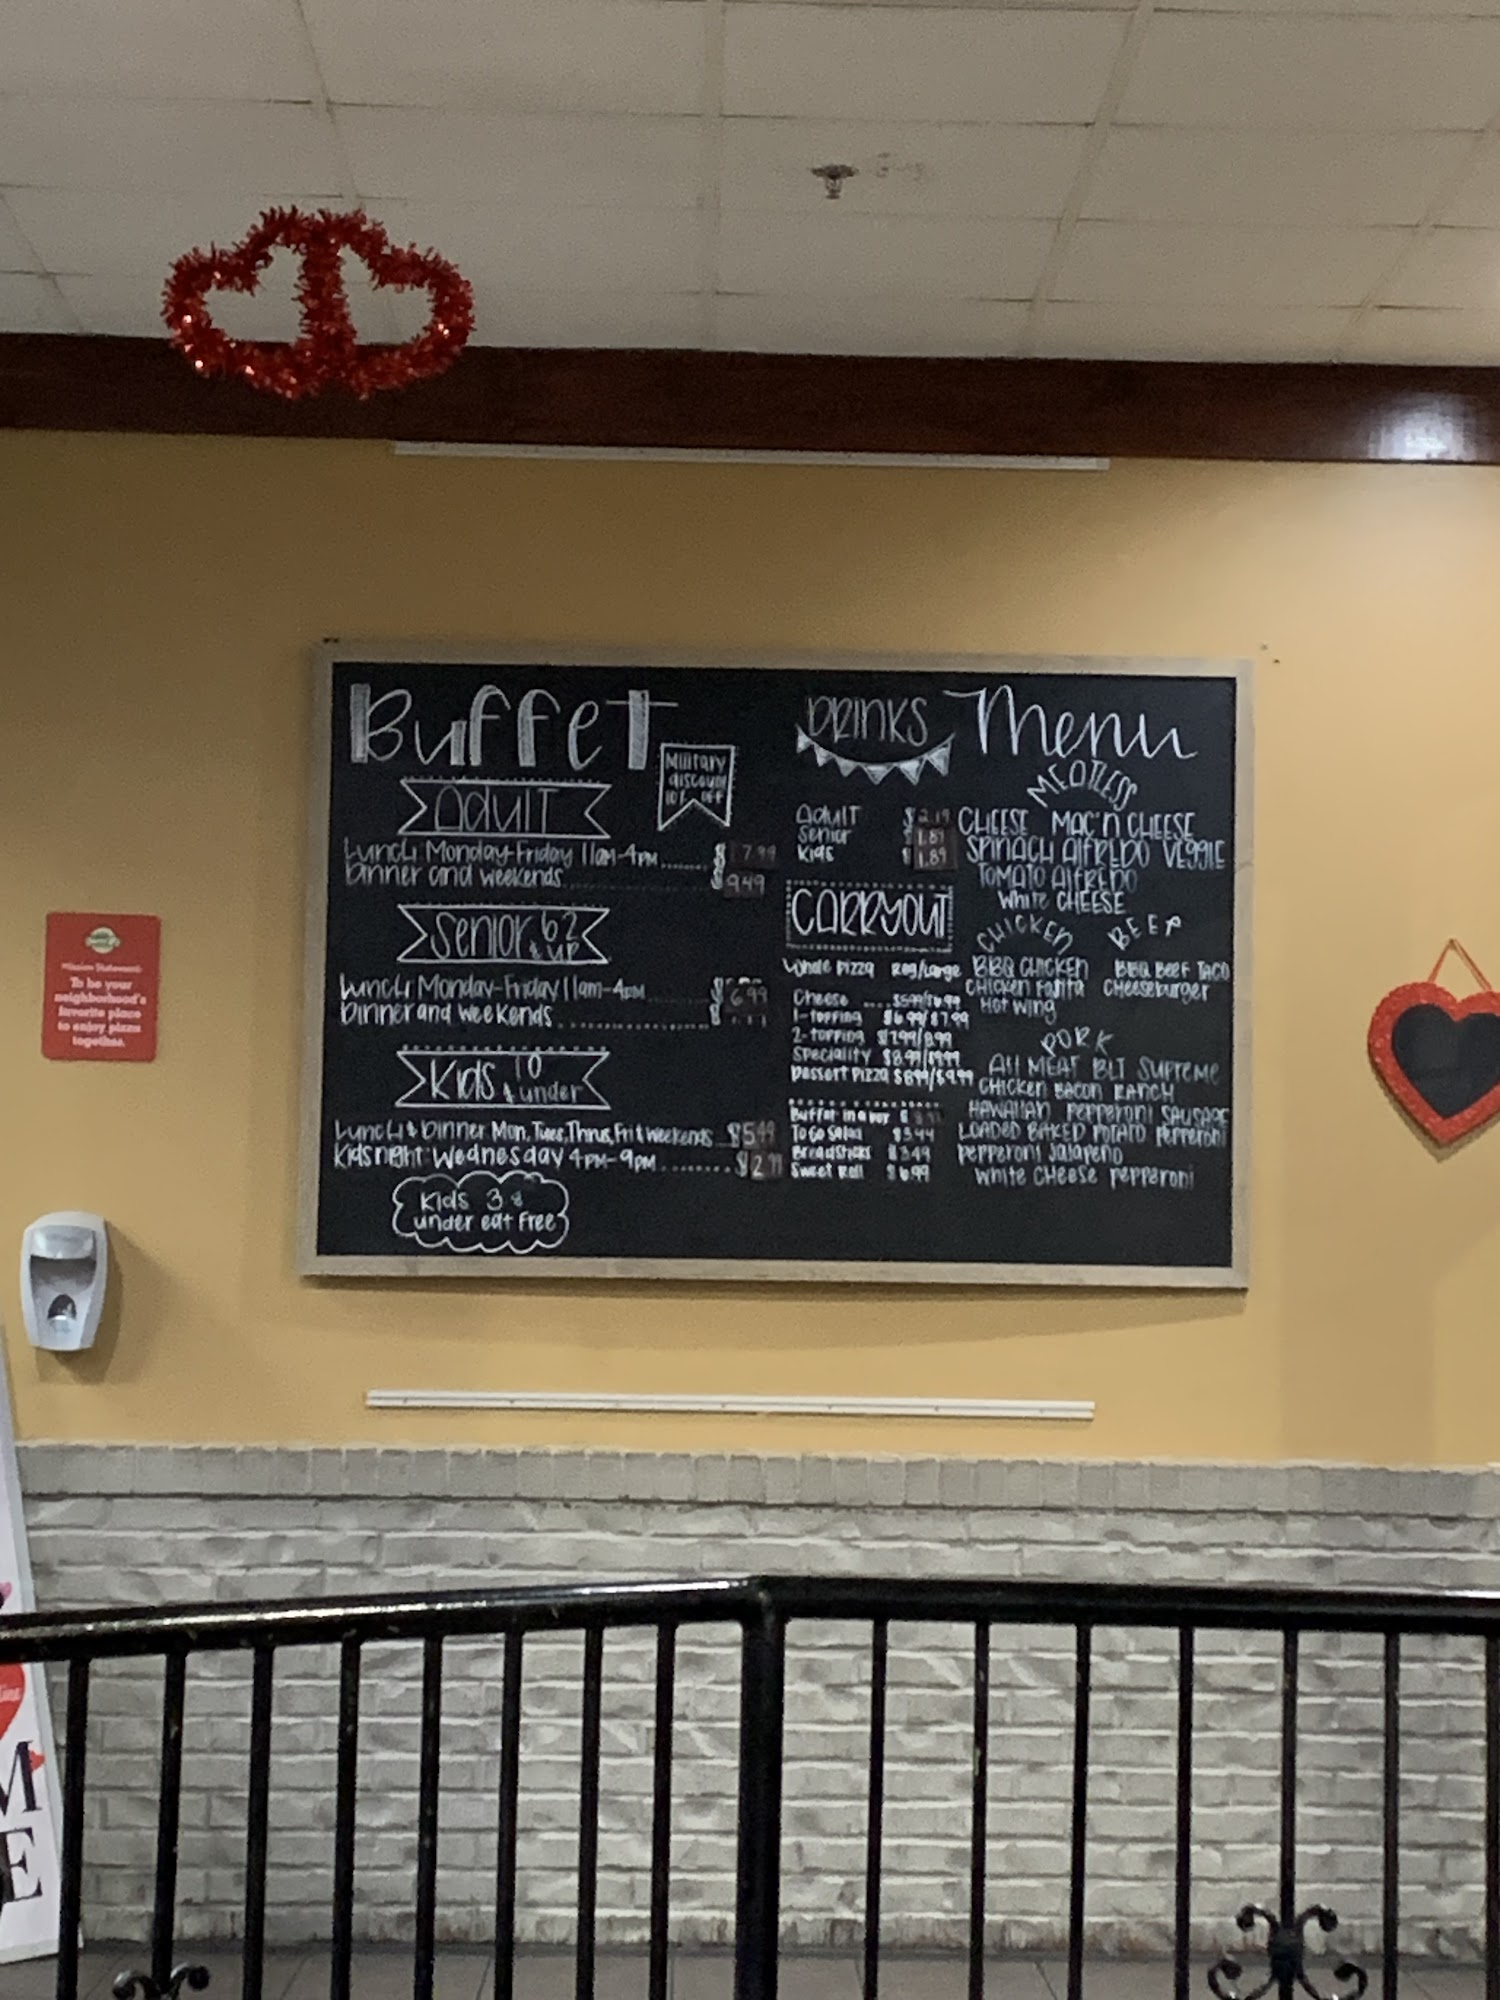 Buffet
Military
discount
10% off
Adult
Lunch Monday-Friday 11am-4pm ...... $7.99
Dinner and weekends ...... $9.49
Senior 62
& up
Lunch Monday-Friday 11am-4pm ...... $6.99
Dinner and weekends ...... $
Kids 10
& under
Lunch & Dinner Mon, Tues, Thrus, Fri & weekends ... $5.49
Kids night: Wednesday 4pm-9pm ........ $2.99
Kids 3 &
under eat free
DRINKS
Adult $2.19
Senior $1.89
Kids $1.89
CARRYOUT
Whole Pizza Reg/Large
Cheese .... $5.99/$6.99
1-topping $6.99/$7.99
2-topping $7.99/8.99
Speciality $8.99/$9.99
Dessert Pizza $8.99/$9.99
Buffet in a box $
To Go Salad $5.49
Breadsticks $3.49
Sweet Roll $6.99
Menu
MEATLESS
CHEESE MAC'N CHEESE
SPINACH ALFREDO VEGGIE
TOMATO ALFREDO
White CHEESE
CHICKEN
BBQ CHICKEN
Chicken Fajita
Hot Wing
BEEF
BBQ BEEF TACO
Cheeseburger
PORK
All MEAT BLT SUPREME
CHICKEN BACON RANCH
HAWAIIAN PEPPERONI SAUSAGE
LOADED BAKED POTATO PEPPERONI
PEPPERONI Jalapeno
White CHEESE PEPPERONI
Mission Statement:
To be your
neighborhood's
favorite place
to enjoy pizza
together.
M
E